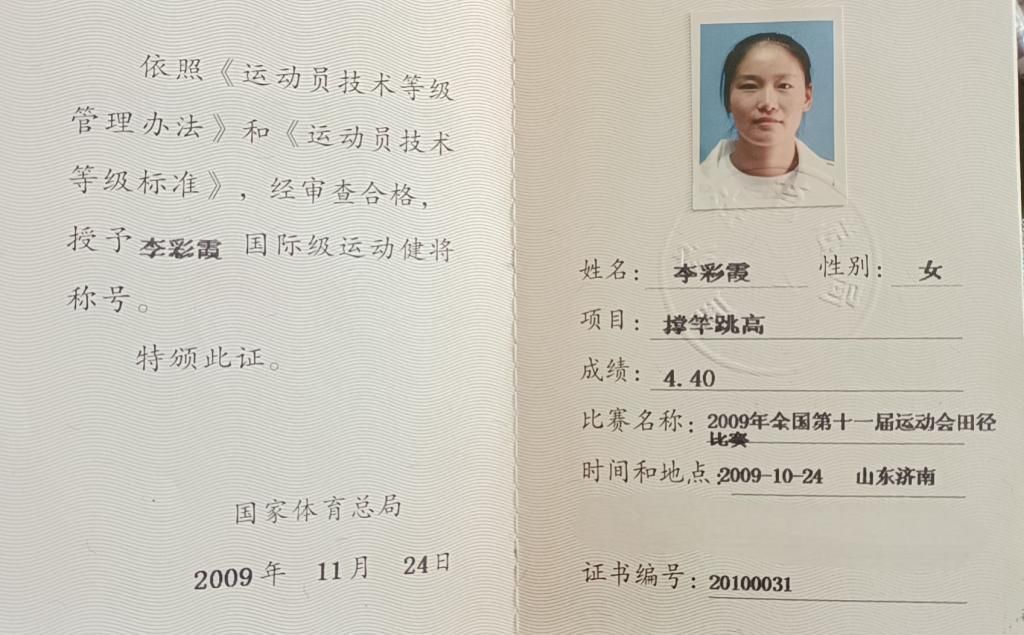 依照《运动员技术等级
管理办法》和《运动员技术
等级标准》，经审查合格，
授予 李彩霞 国际级运动健将
称号。
特颁此证。
国家体育总局
2009年 11月 24日
姓名： 李彩霞 性别： 女
项目： 撑竿跳高
成绩： 4.40
比赛名称： 2009年全国第十一届运动会田径
比赛
时间和地点： 2009-10-24 山东济南
证书编号： 20100031